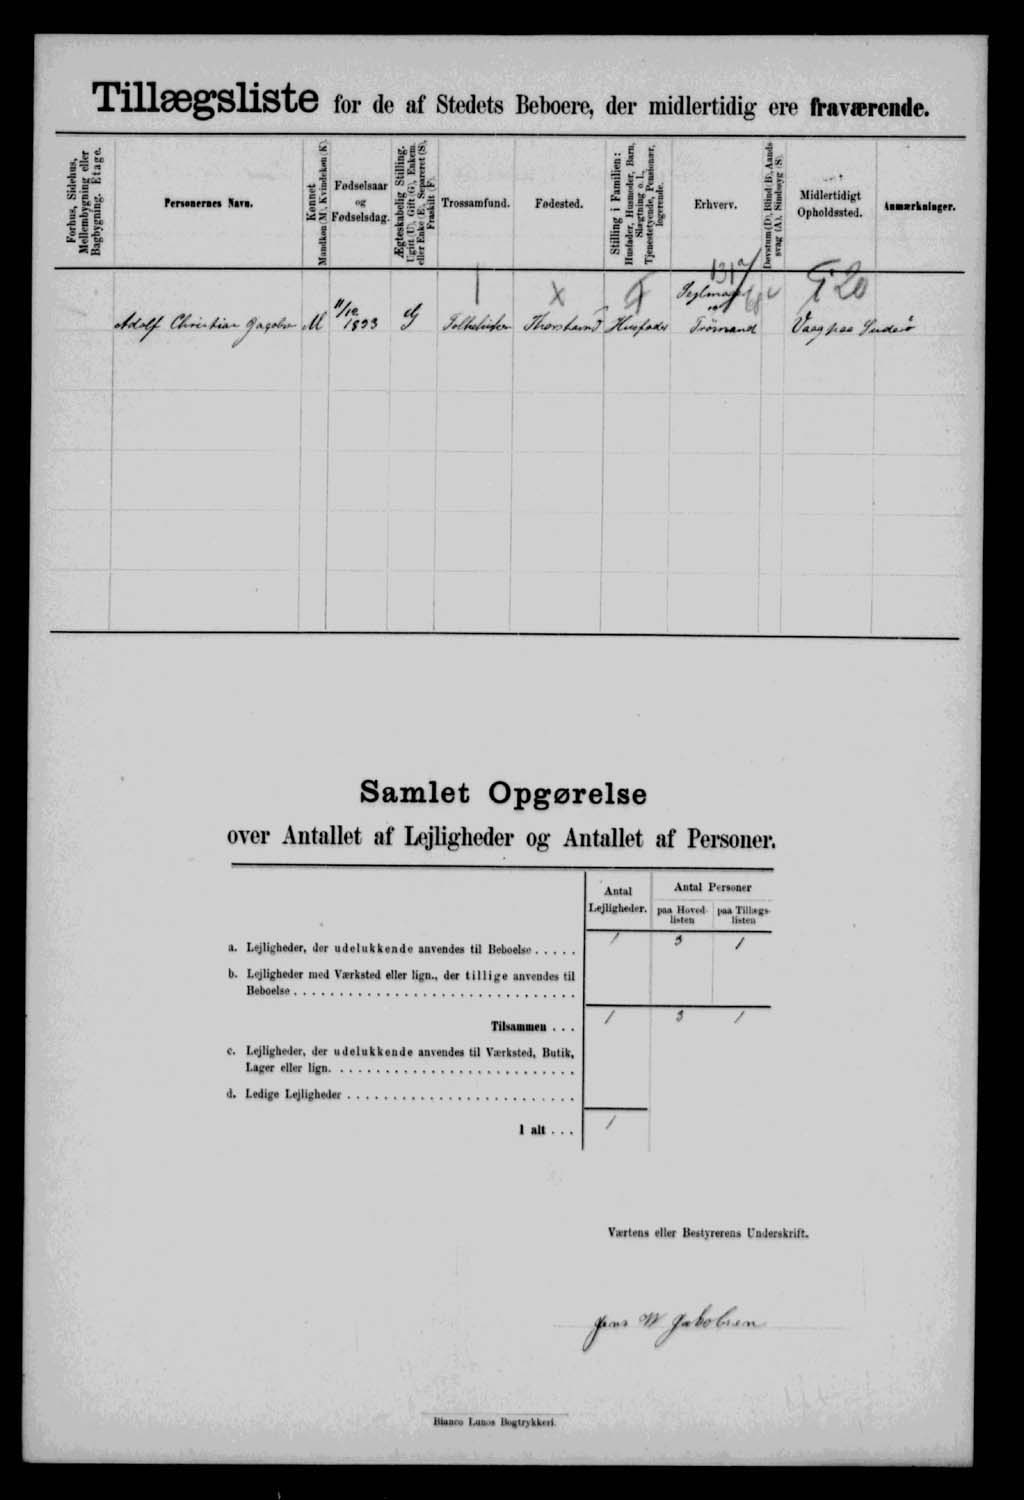 Tillægsliste for de af Stedets Beboere, der midlertidig ere fraværende.
Forhus, Sidehus, Mellembygning eller Bagbygning. Etage.
Personernes Navn.
Kønnet Mandkøn (M), Kvindekøn (K)
Fødselsaar og Fødselsdag.
Ægteskabelig Stilling. Ugift (U), Gift (G), Enkem. eller Enke (E), Separeret (S), Fraskilt (F).
Trossamfund.
Fødested.
Stilling i Familien: Husfader, Husmoder, Barn, Slægtning o. l., Tjenestetyende, Pensionær, logerende.
Erhverv.
Døvstum (D), Blind (B), Aandssvag (A), Sindssyg (S).
Midlertidigt Opholdssted.
Anmærkninger.
131a
T 20
Adolf Christian M 11/10 1893 G Folkekirken Thorshavn Husfader Trömand Vaag paa Suderö
Samlet Opgørelse
over Antallet af Lejligheder og Antallet af Personer.
Antal Lejligheder.
Antal Personer
paa Hoved-listen
paa Tillægs-listen
a. Lejligheder, der udelukkende anvendes til Beboelse . . . . . 1 3 1
b. Lejligheder med Værksted eller lign., der tillige anvendes til
Beboelse . . . . . . . . . . . . . . . . . . . . . . . . . . . . .
Tilsammen . . . 1 3 1
c. Lejligheder, der udelukkende anvendes til Værksted, Butik,
Lager eller lign. . . . . . . . . . . . . . . . . . . . . . . . . .
d. Ledige Lejligheder . . . . . . . . . . . . . . . . . . . . . . . .
I alt . . . 1
Værtens eller Bestyrerens Underskrift.
Jens W Jakobsen
Bianco Lunos Bogtrykkeri.